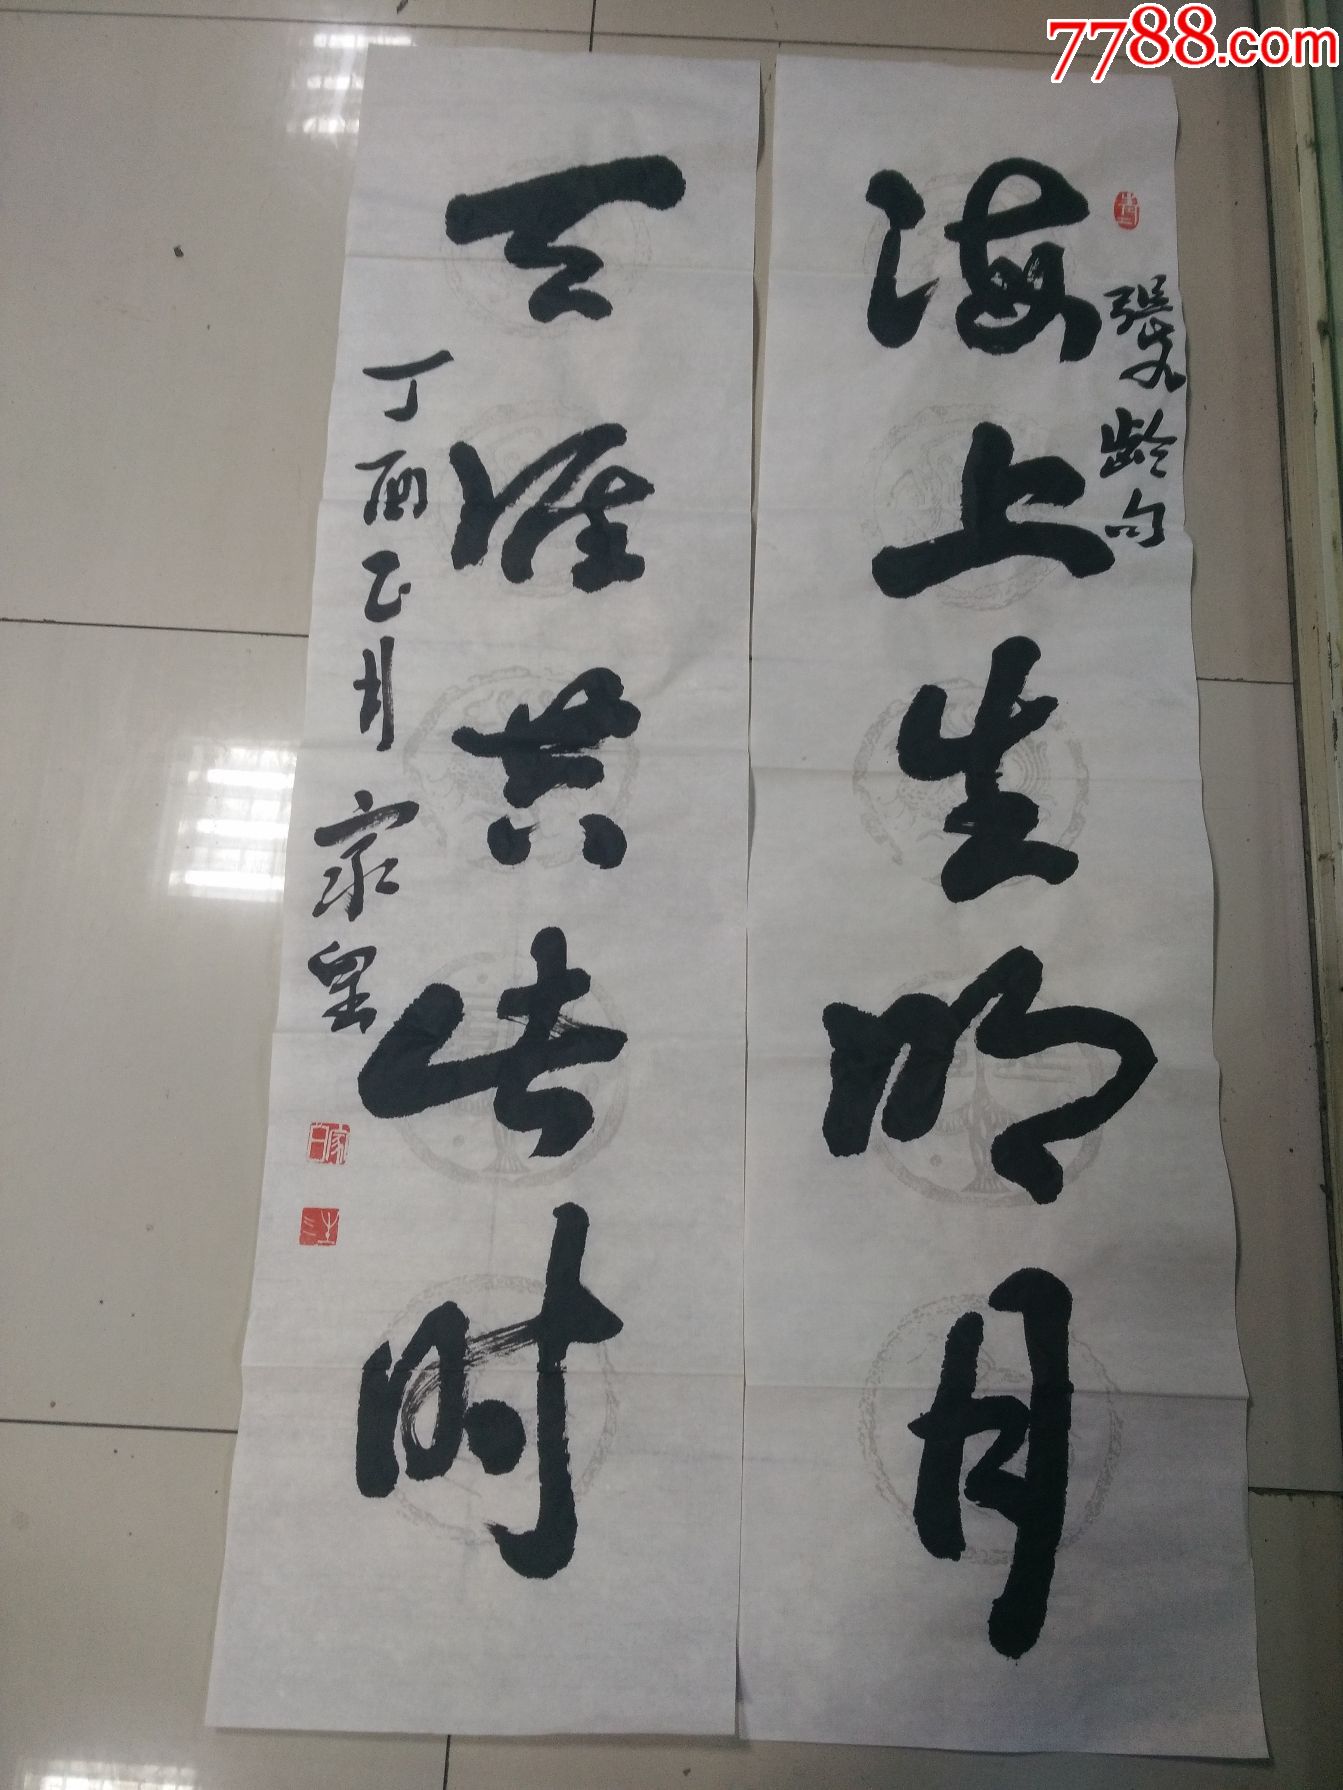 7788.com
张九龄句
海上生明月
天涯共此时
丁酉正月 家皇